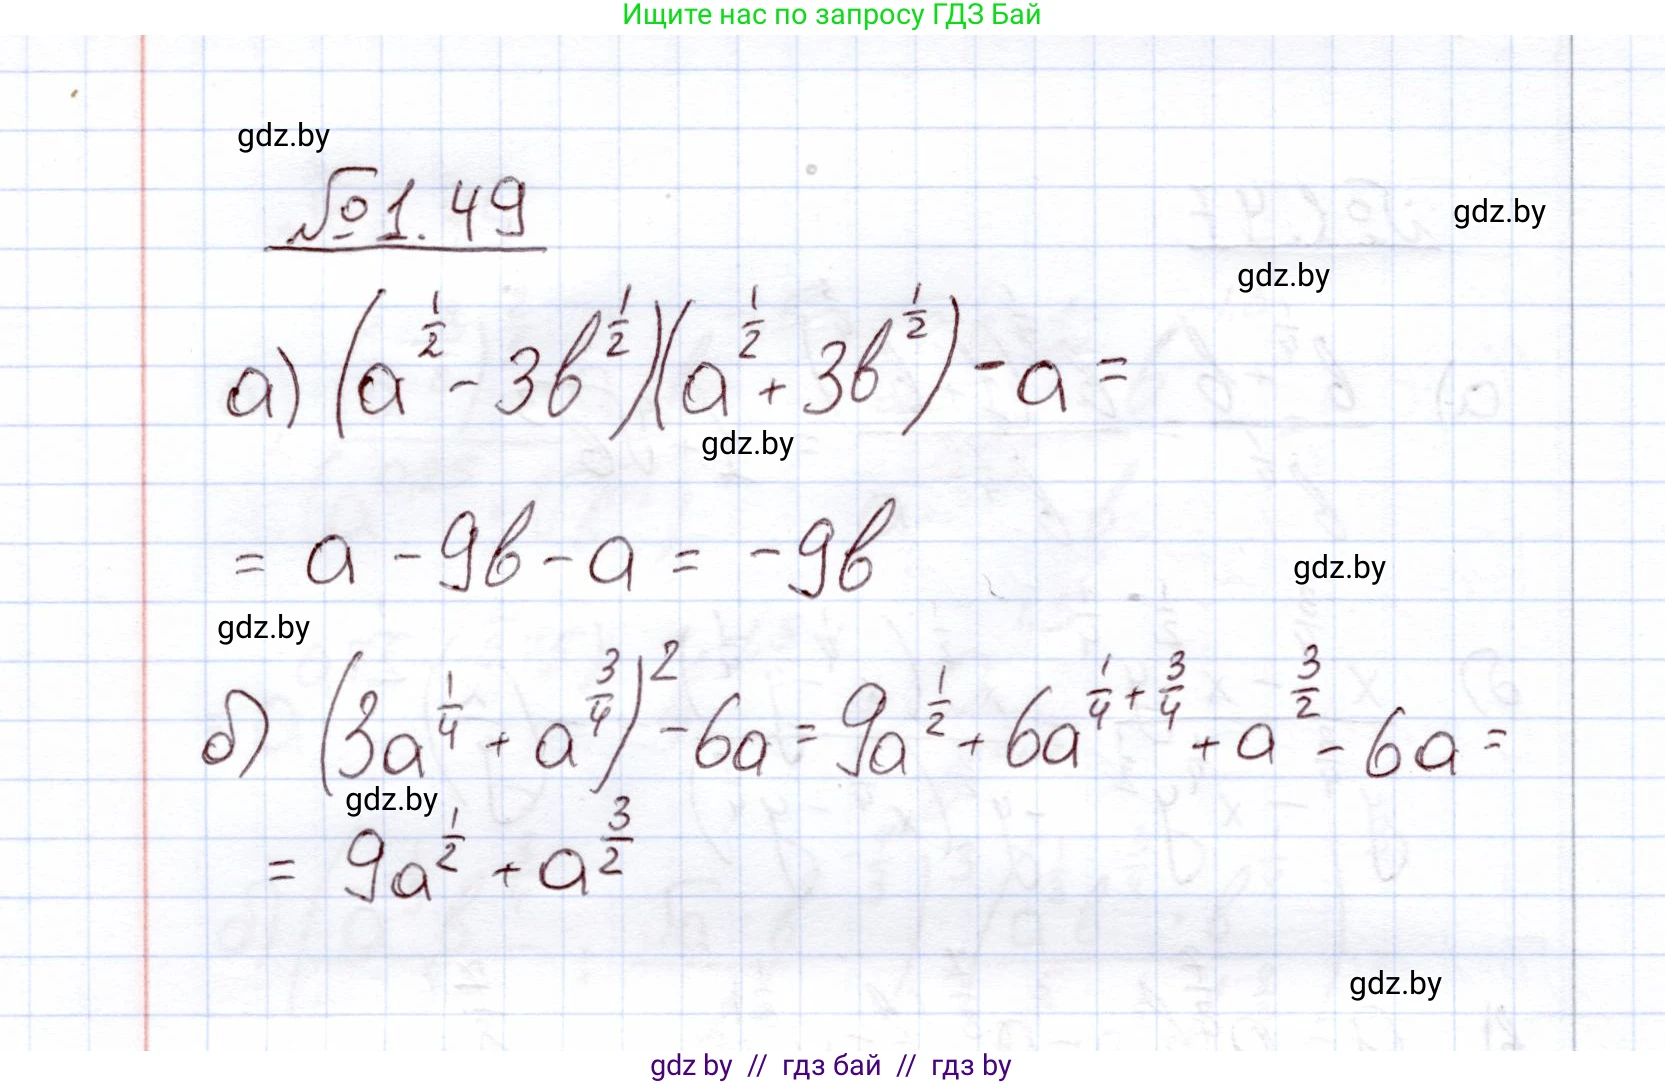 Ищите нас по запросу ГДЗ Бай
gdz.by
№1.49
gdz.by
gdz.by
а) (a^{1/2} - 3b^{1/2})(a^{1/2} + 3b^{1/2}) - a =
gdz.by
= a - 9b - a = -9b
gdz.by
gdz.by
б) (3a^{1/4} + a^{3/4})^2 - 6a = 9a^{1/2} + 6a^{1/4 + 3/4} + a^{3/2} - 6a =
gdz.by
= 9a^{1/2} + a^{3/2}
gdz.by
gdz by // гдз бай // гдз by